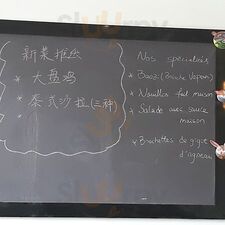 新菜推出
* 大盘鸡
* 泰式沙拉(三种)
*
Nos specialités
* Baozi (Brioche Vapeur)
* Nouilles fait maison
* Salade avec sauce
maison
* Brochettes de gigot
d'agneau